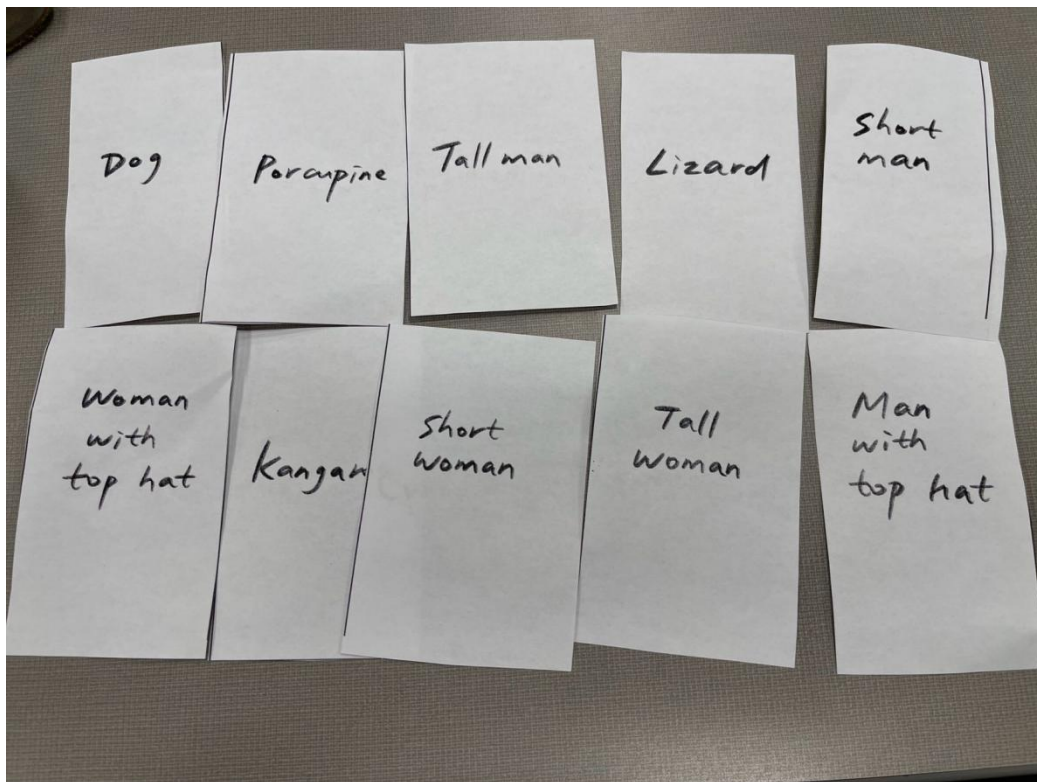 Dog
Porcupine
Tall man
Lizard
Short
man
Woman
with
top hat
Short
woman
Tall
woman
Man
with
top hat